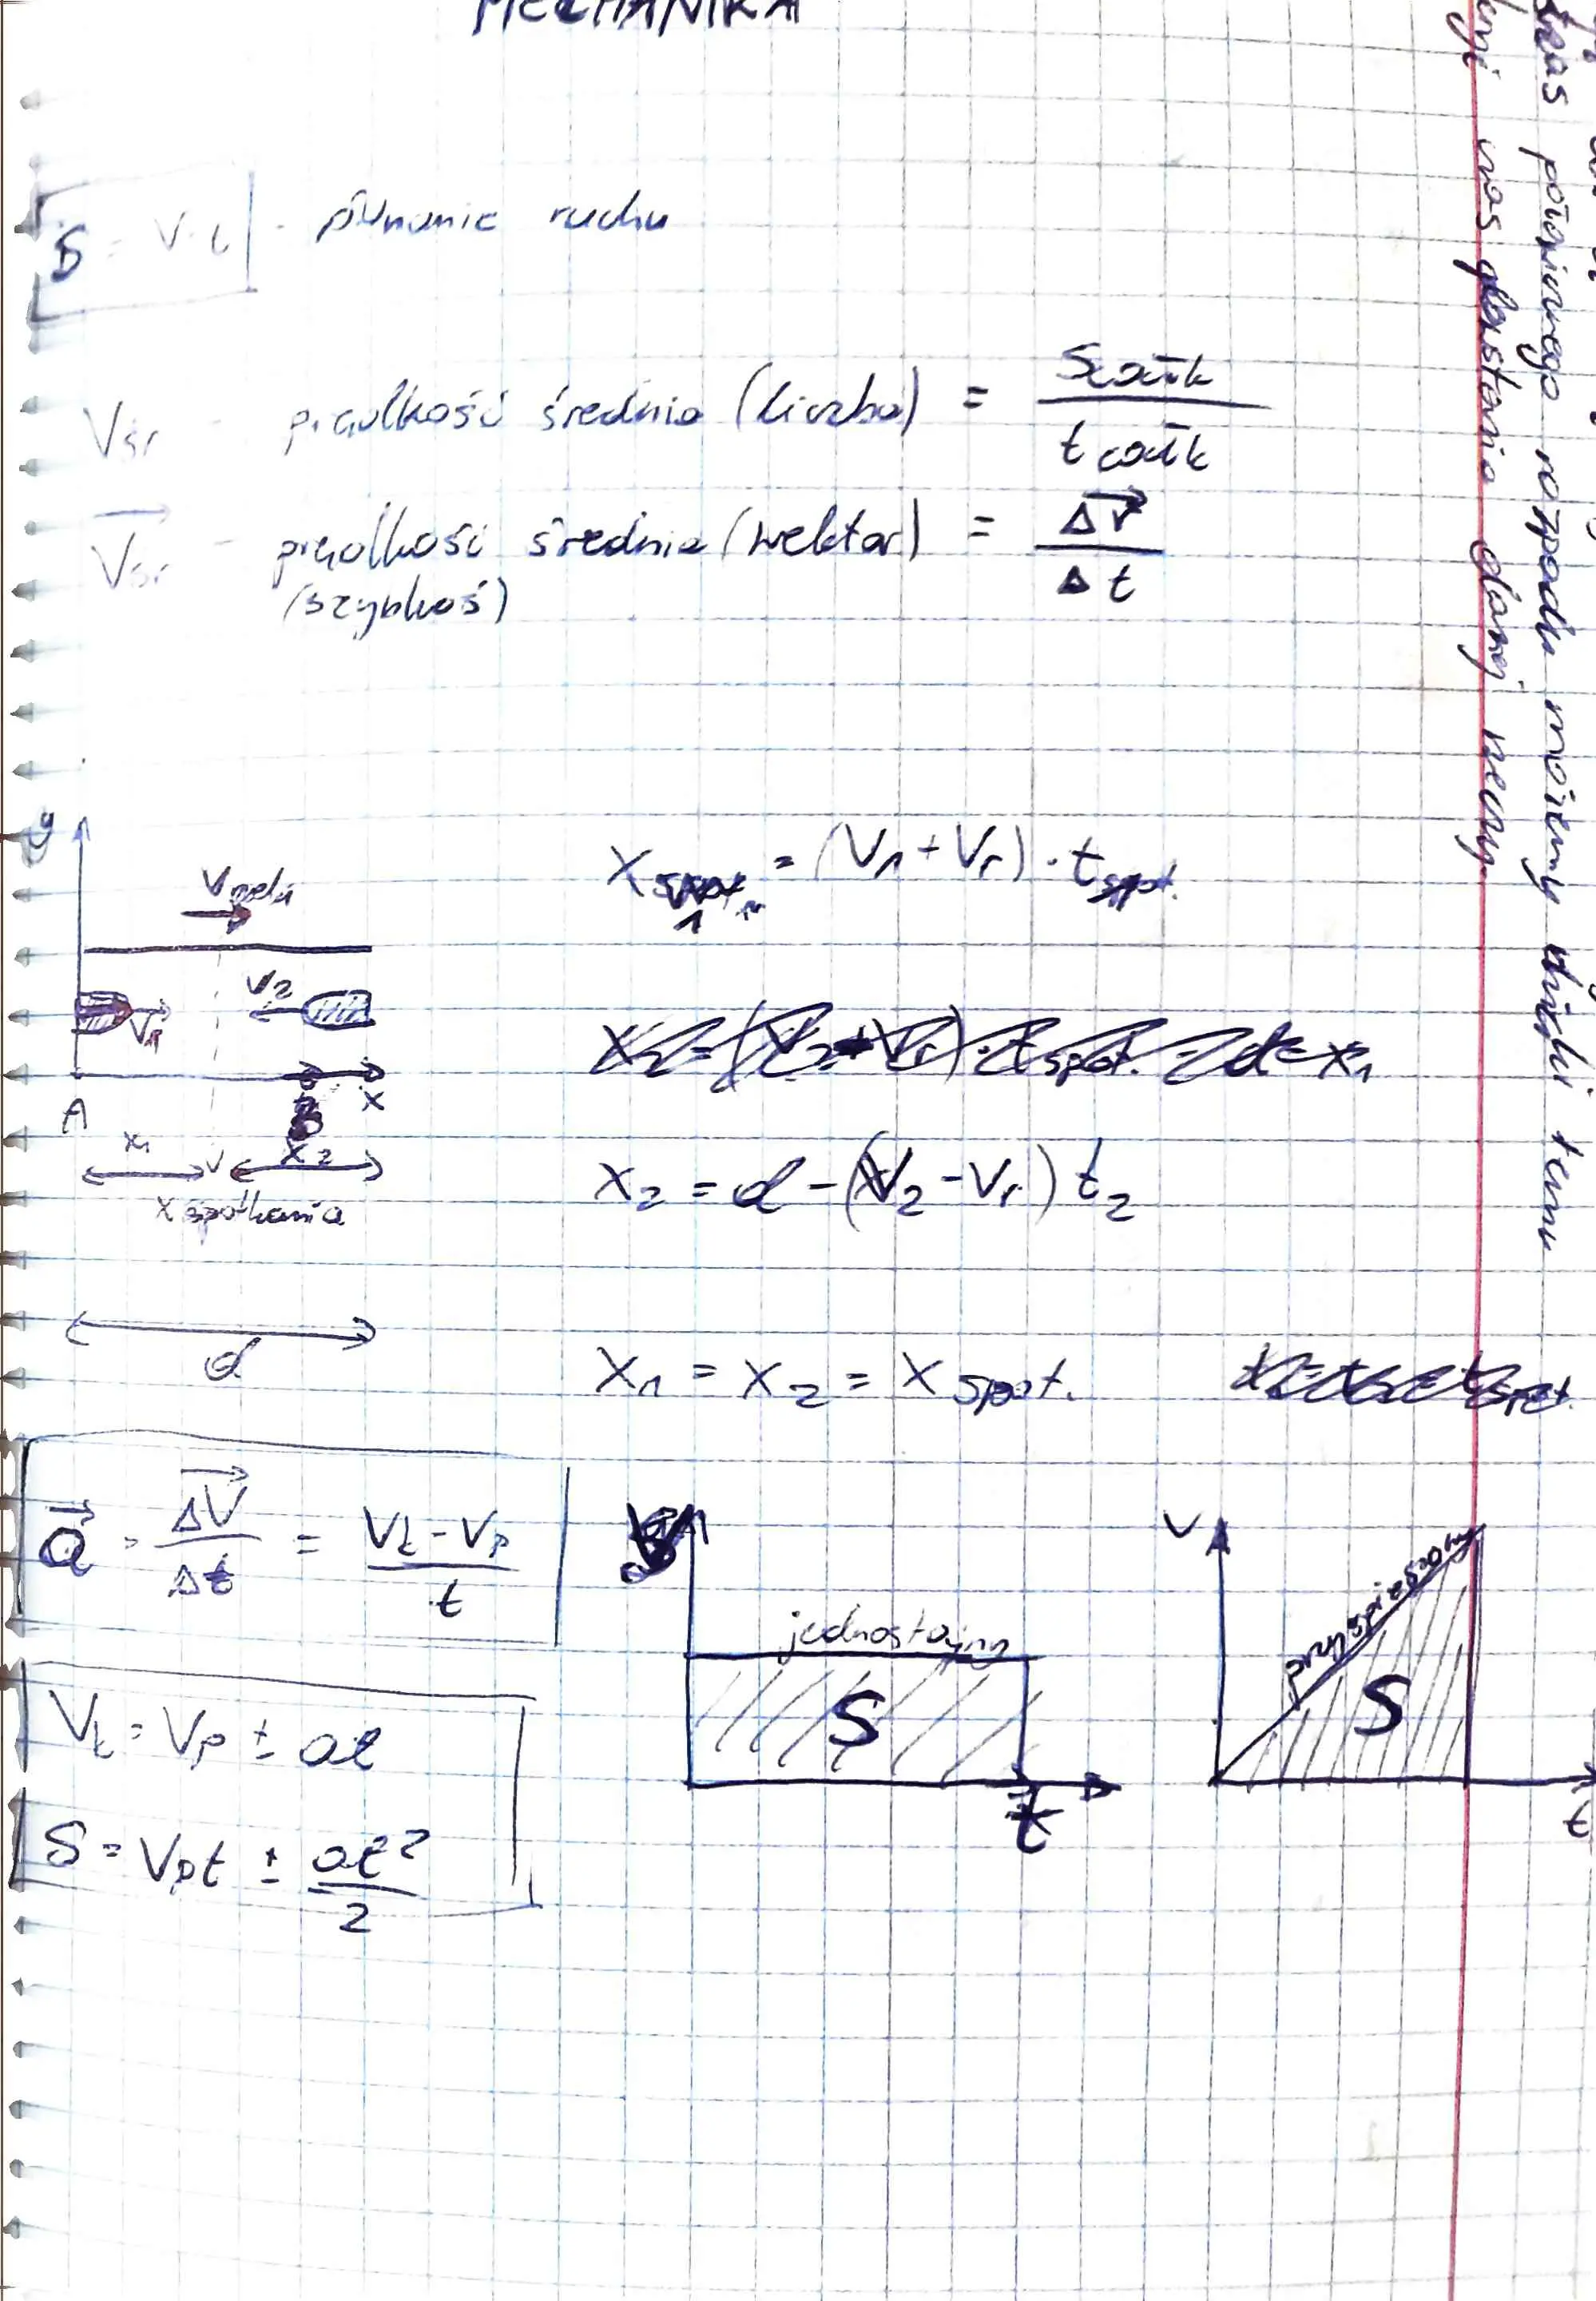 MECHANIKA
S = V·t - równanie ruchu
Vśr - prędkość średnia (liczba) = Scałk / tcałk
Vśr - prędkość średnia (wektor) = Δr / Δt
(szybkość)
y
Vrzeki
V1
V2
A
B
x
x1
x2
x spotkania
d
X1 = (V1 + Vr) · tspot.
X2 = d - (V2 - Vr) t2
X1 = X2 = X spot.
a = ΔV / Δt = Vk - Vp / t
Vk = Vp ± at
S = Vpt ± at² / 2
V
jednostajny
S
t
V
przyspieszony
S
t
czas połowicznego rozpadu możemy dzięki temu
nas danej